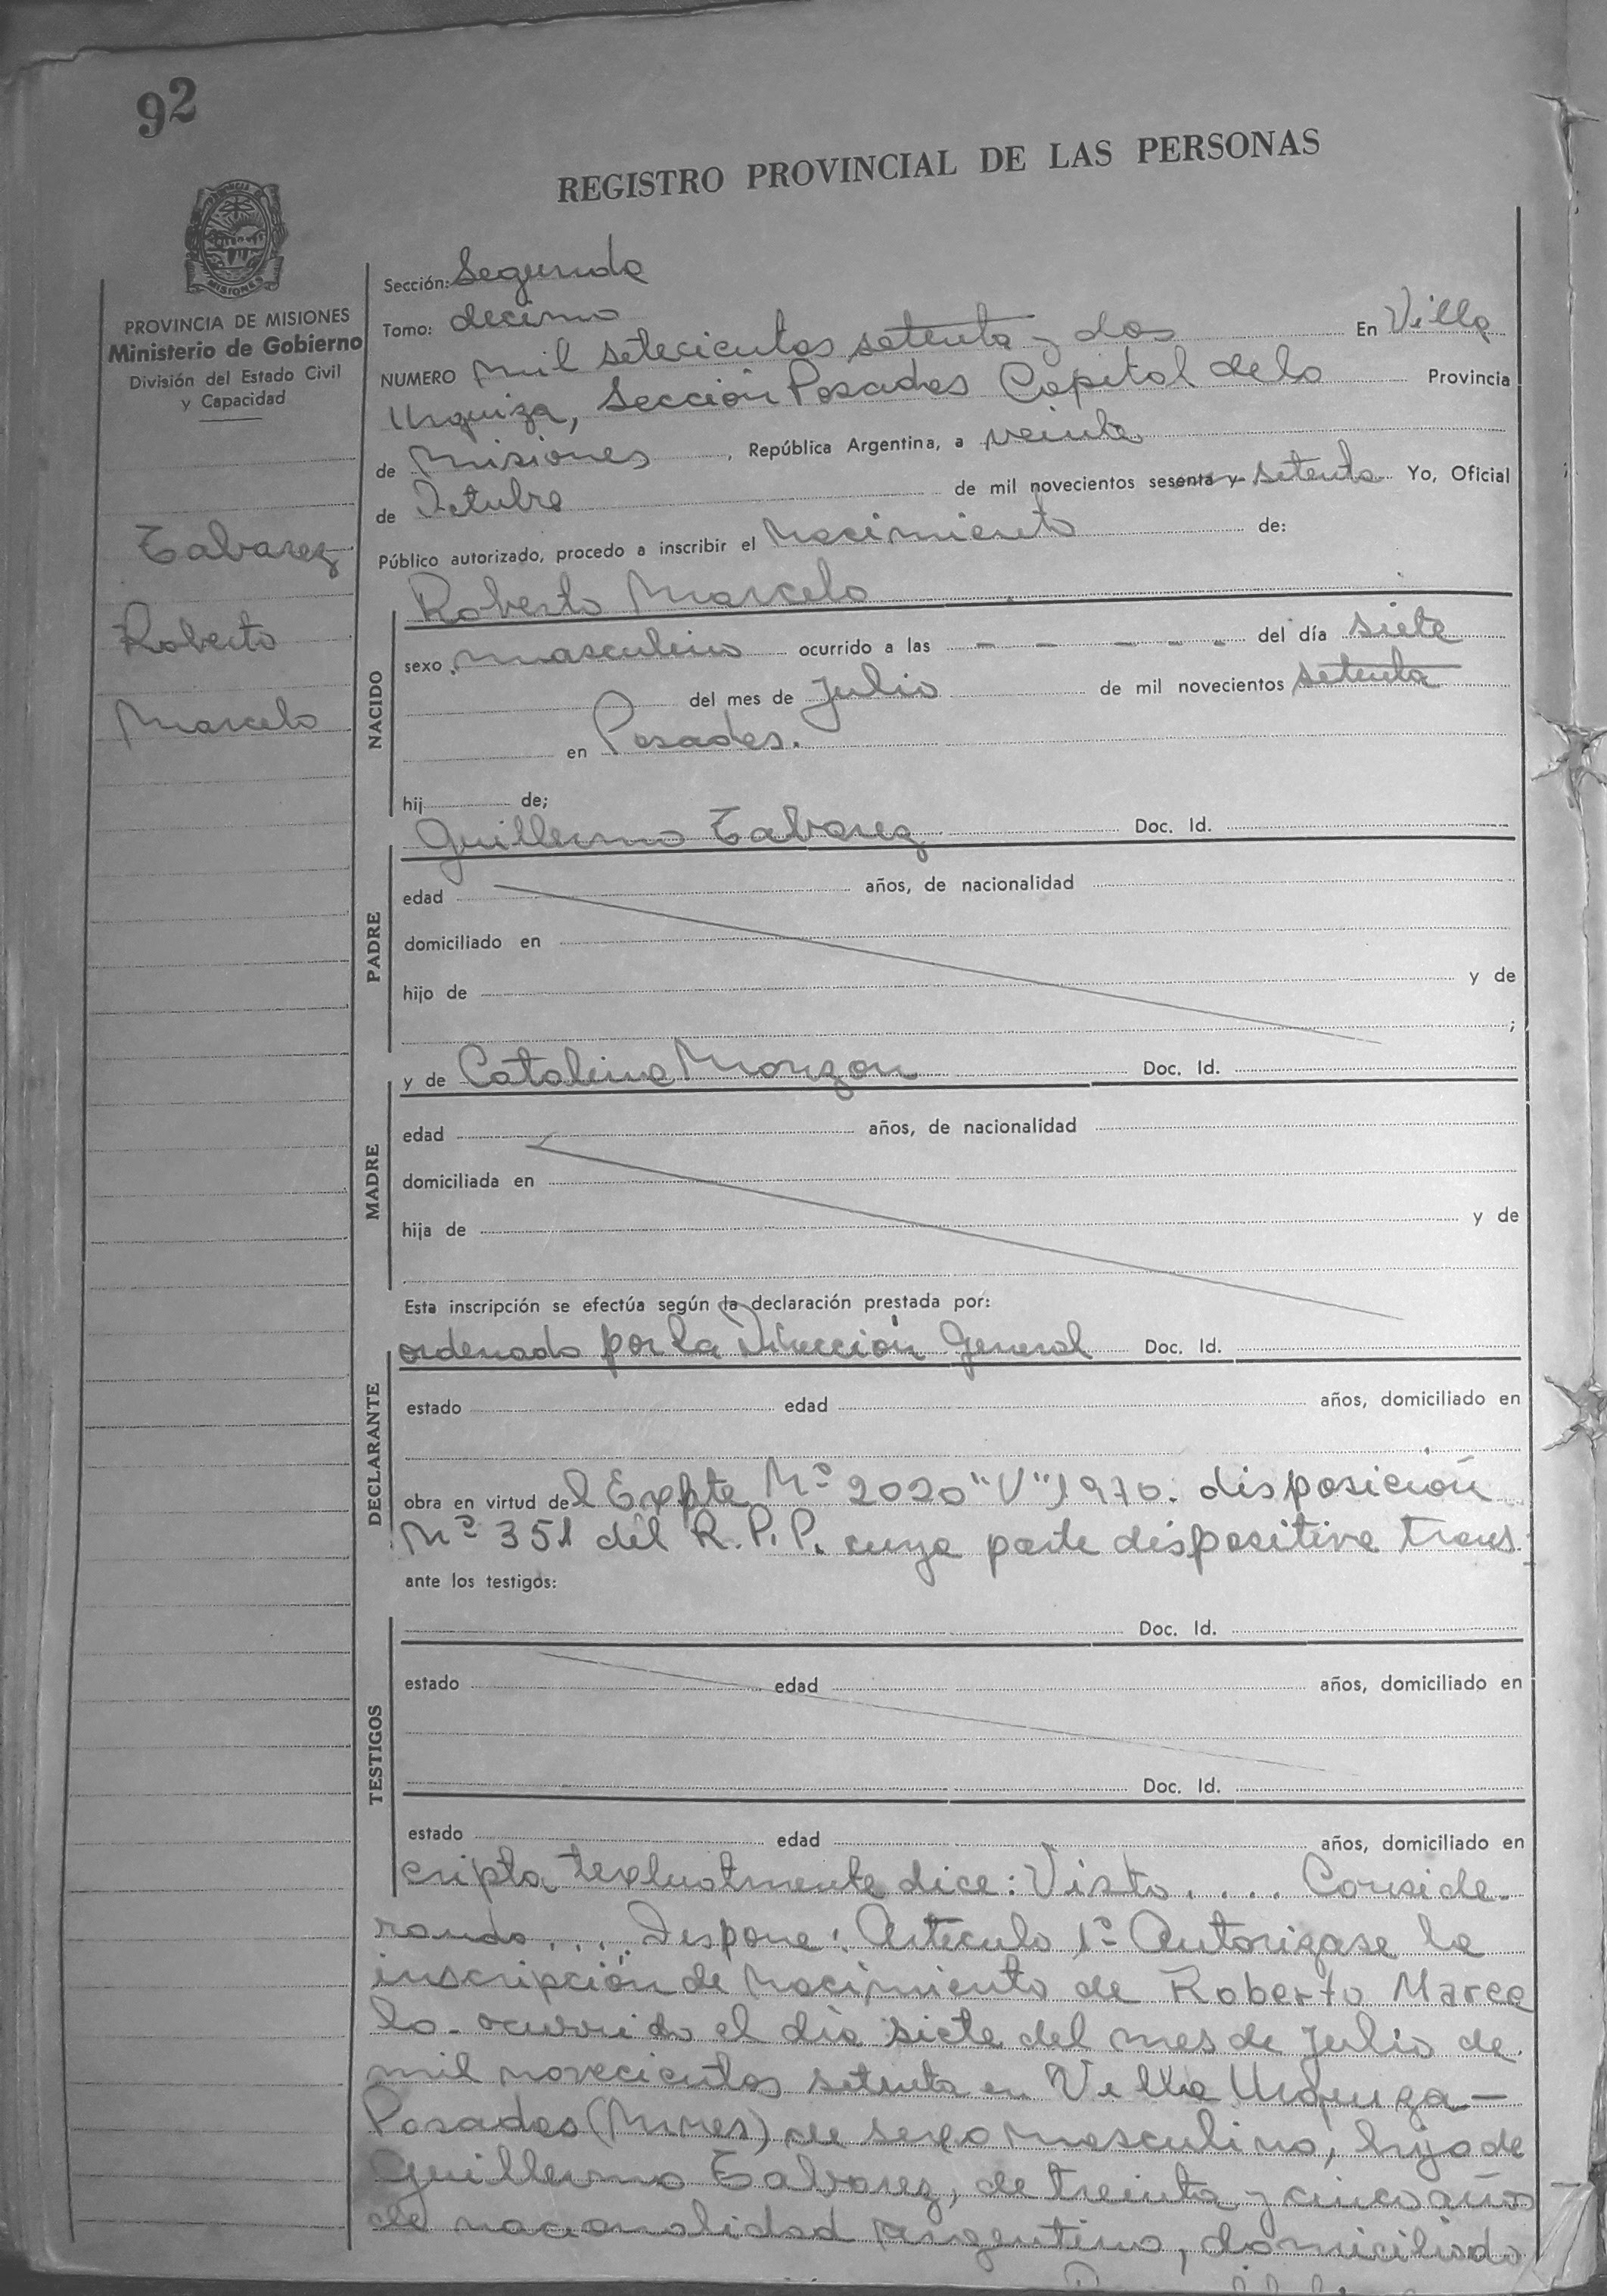 92
REGISTRO PROVINCIAL DE LAS PERSONAS
MISIONES
PROVINCIA DE MISIONES
Ministerio de Gobierno
División del Estado Civil
y Capacidad
Tabarez
Roberto
Marcelo
Sección: Segunda
Tomo: decimo
NUMERO mil setecientos setenta y dos En Villa
Urquiza, Sección Posadas Capital de la Provincia
de Misiones, República Argentina, a veinte
de Octubre de mil novecientos sesenta y setenta Yo, Oficial
Público autorizado, procedo a inscribir el nacimiento de:
NACIDO
Roberto Marcelo
sexo masculino ocurrido a las - - - - - del día siete
del mes de Julio de mil novecientos setenta
en Posadas.
hij de;
PADRE
Guillermo Tabarez Doc. Id.
edad años, de nacionalidad
domiciliado en
hijo de y de
;
MADRE
y de Catalina Monzon Doc. Id.
edad años, de nacionalidad
domiciliada en
hija de y de
Esta inscripción se efectúa según la declaración prestada por:
DECLARANTE
ordenado por la Dirección General Doc. Id.
estado edad años, domiciliado en
obra en virtud del Expte Nº 2020 "V" 1970. disposición
Nº 351 del R.P.P. cuya parte dispositiva trans-
ante los testigos:
TESTIGOS
Doc. Id.
estado edad años, domiciliado en
Doc. Id.
estado edad años, domiciliado en
cripta textualmente dice: Visto .... Conside-
rando ..... Dispone: Artículo 1º Autorizase la
inscripción de nacimiento de Roberto Marce
lo - ocurrido el día siete del mes de Julio de
mil novecientos setenta en Villa Urquiza -
Posadas (Mnes) de sexo masculino, hijo de
Guillermo Tabarez, de treinta y cinco años
de nacionalidad argentino, domiciliado